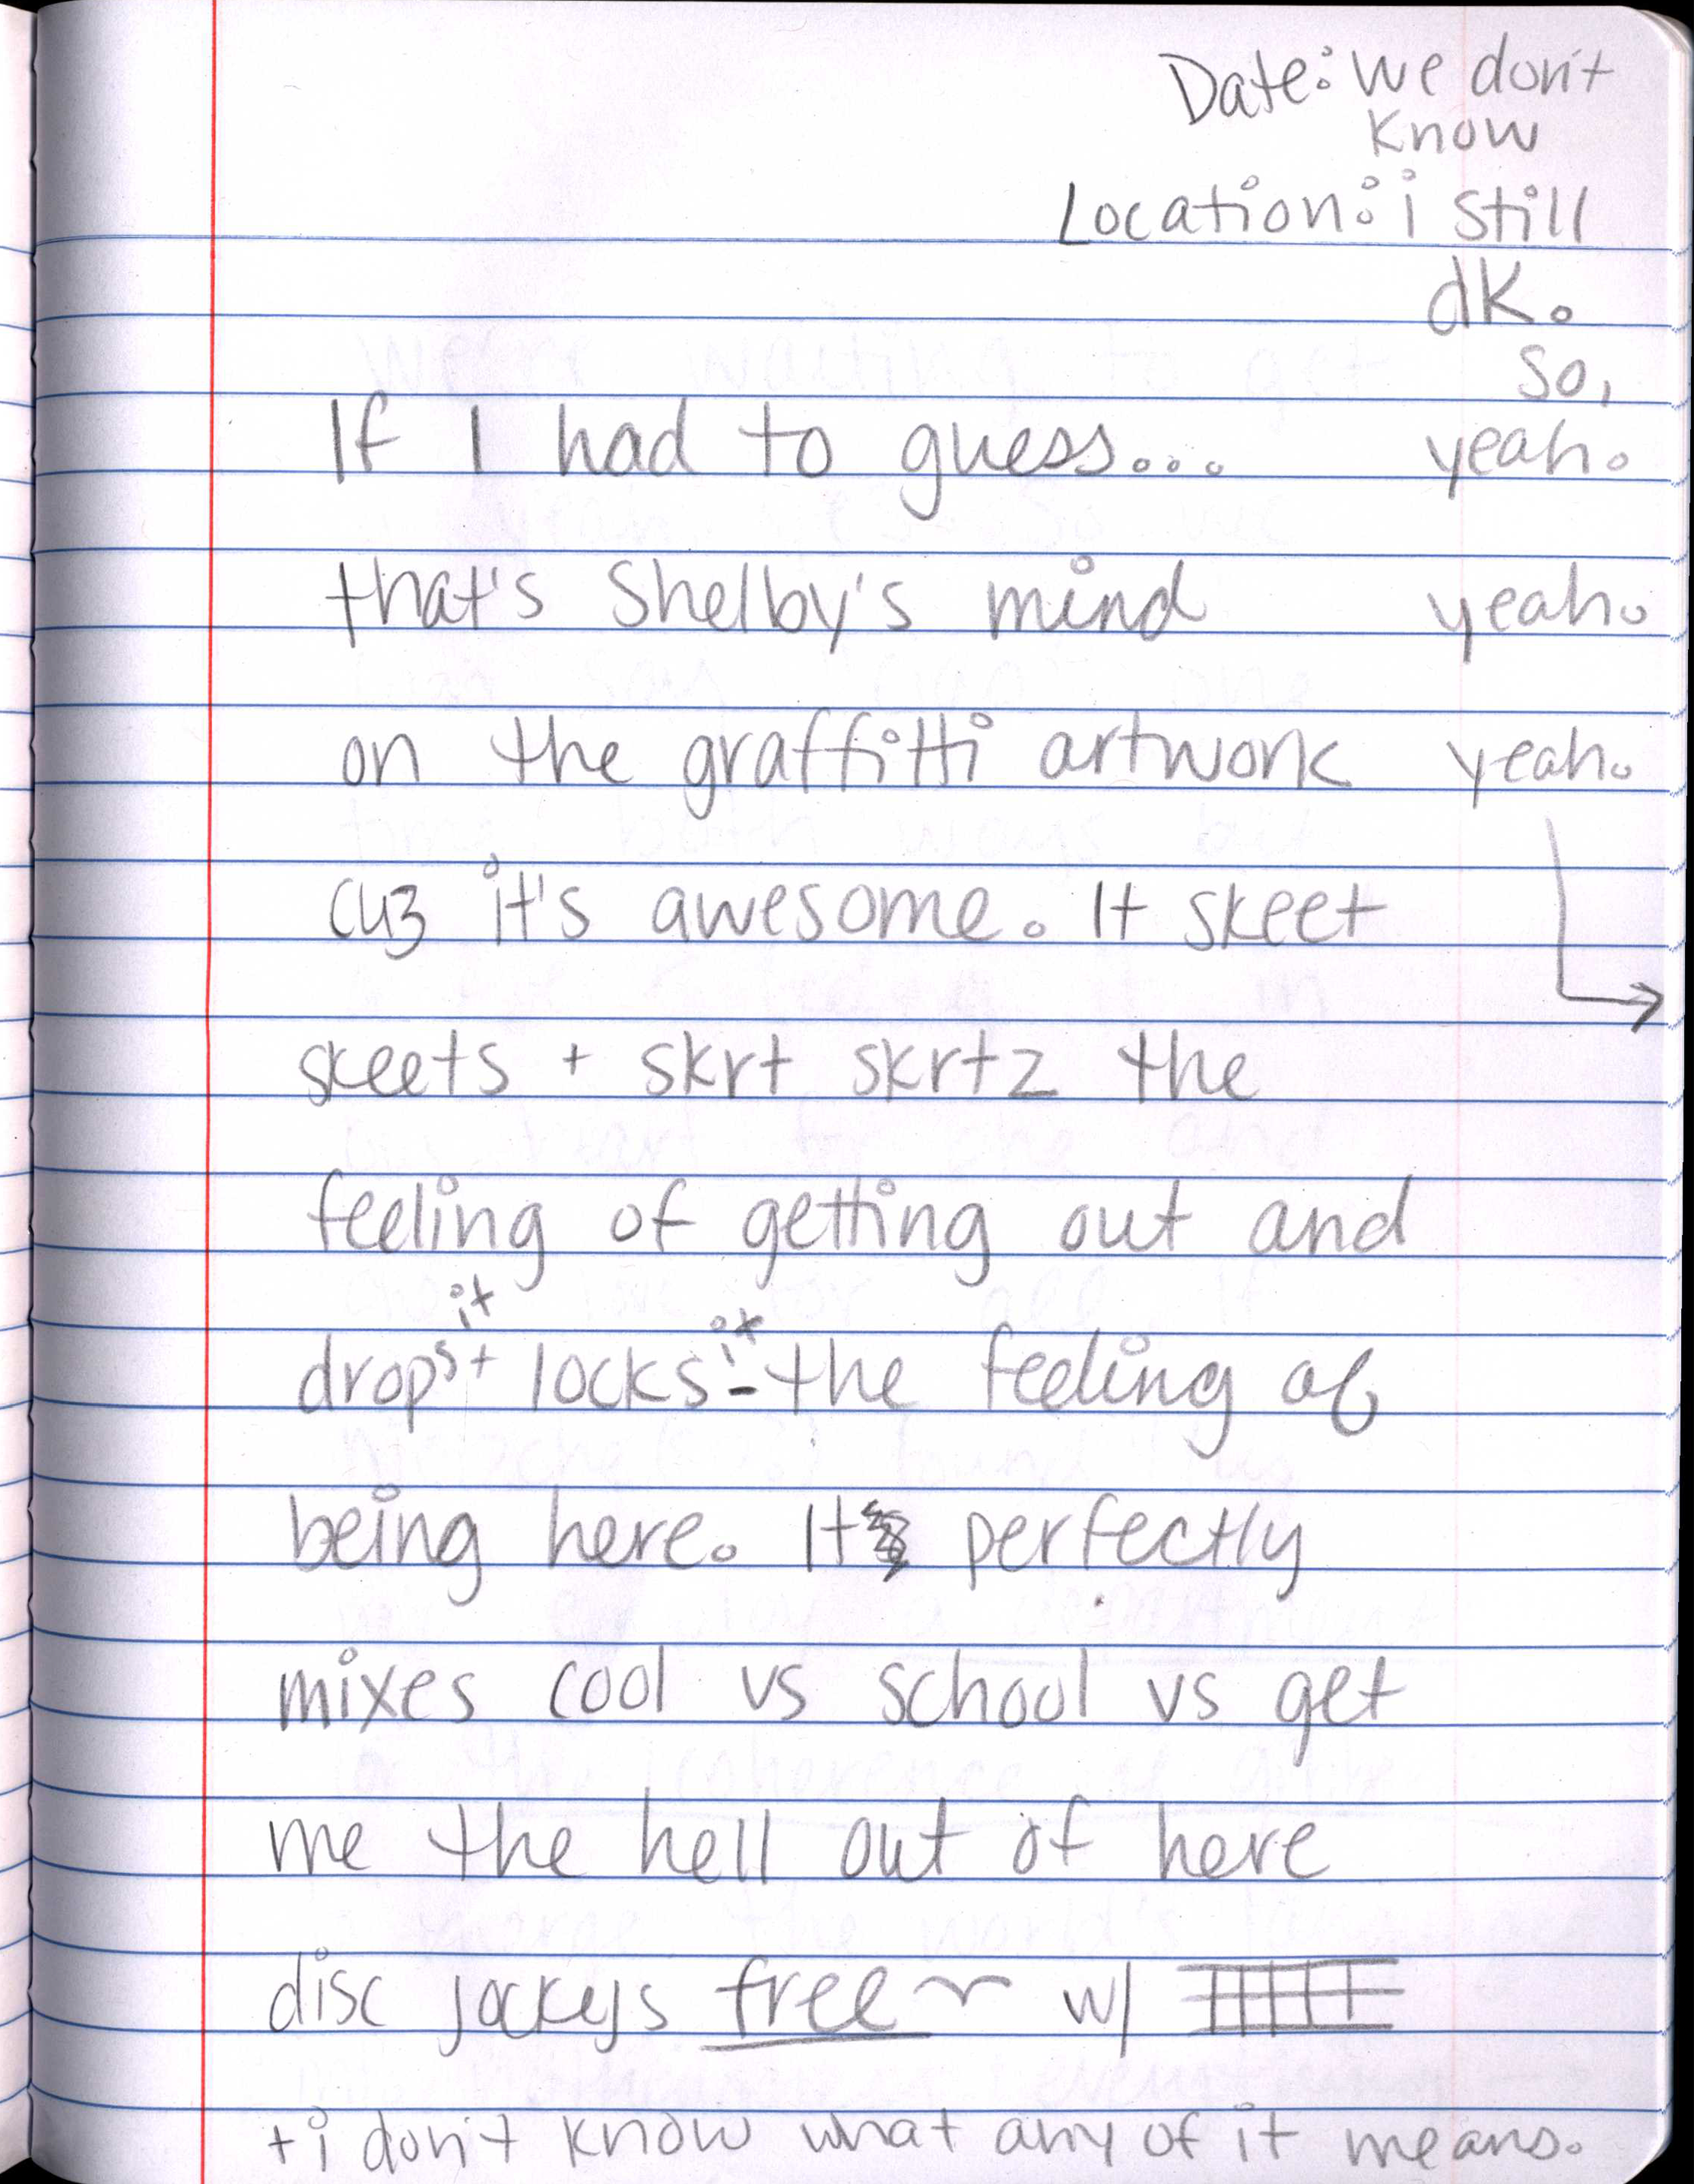 Date: we don't
know
Location: i still
dk.
so,
If I had to guess... yeah.
that's Shelby's mind yeah.
on the graffitti artwork yeah.
cuz it's awesome. It skeet
skeets + skrt skrtz the
feeling of getting out and
it it
drops + locks - the feeling of
being here. It perfectly
mixes cool vs school vs get
me the hell out of here
disc jockeys free w/
+ i don't know what any of it means.